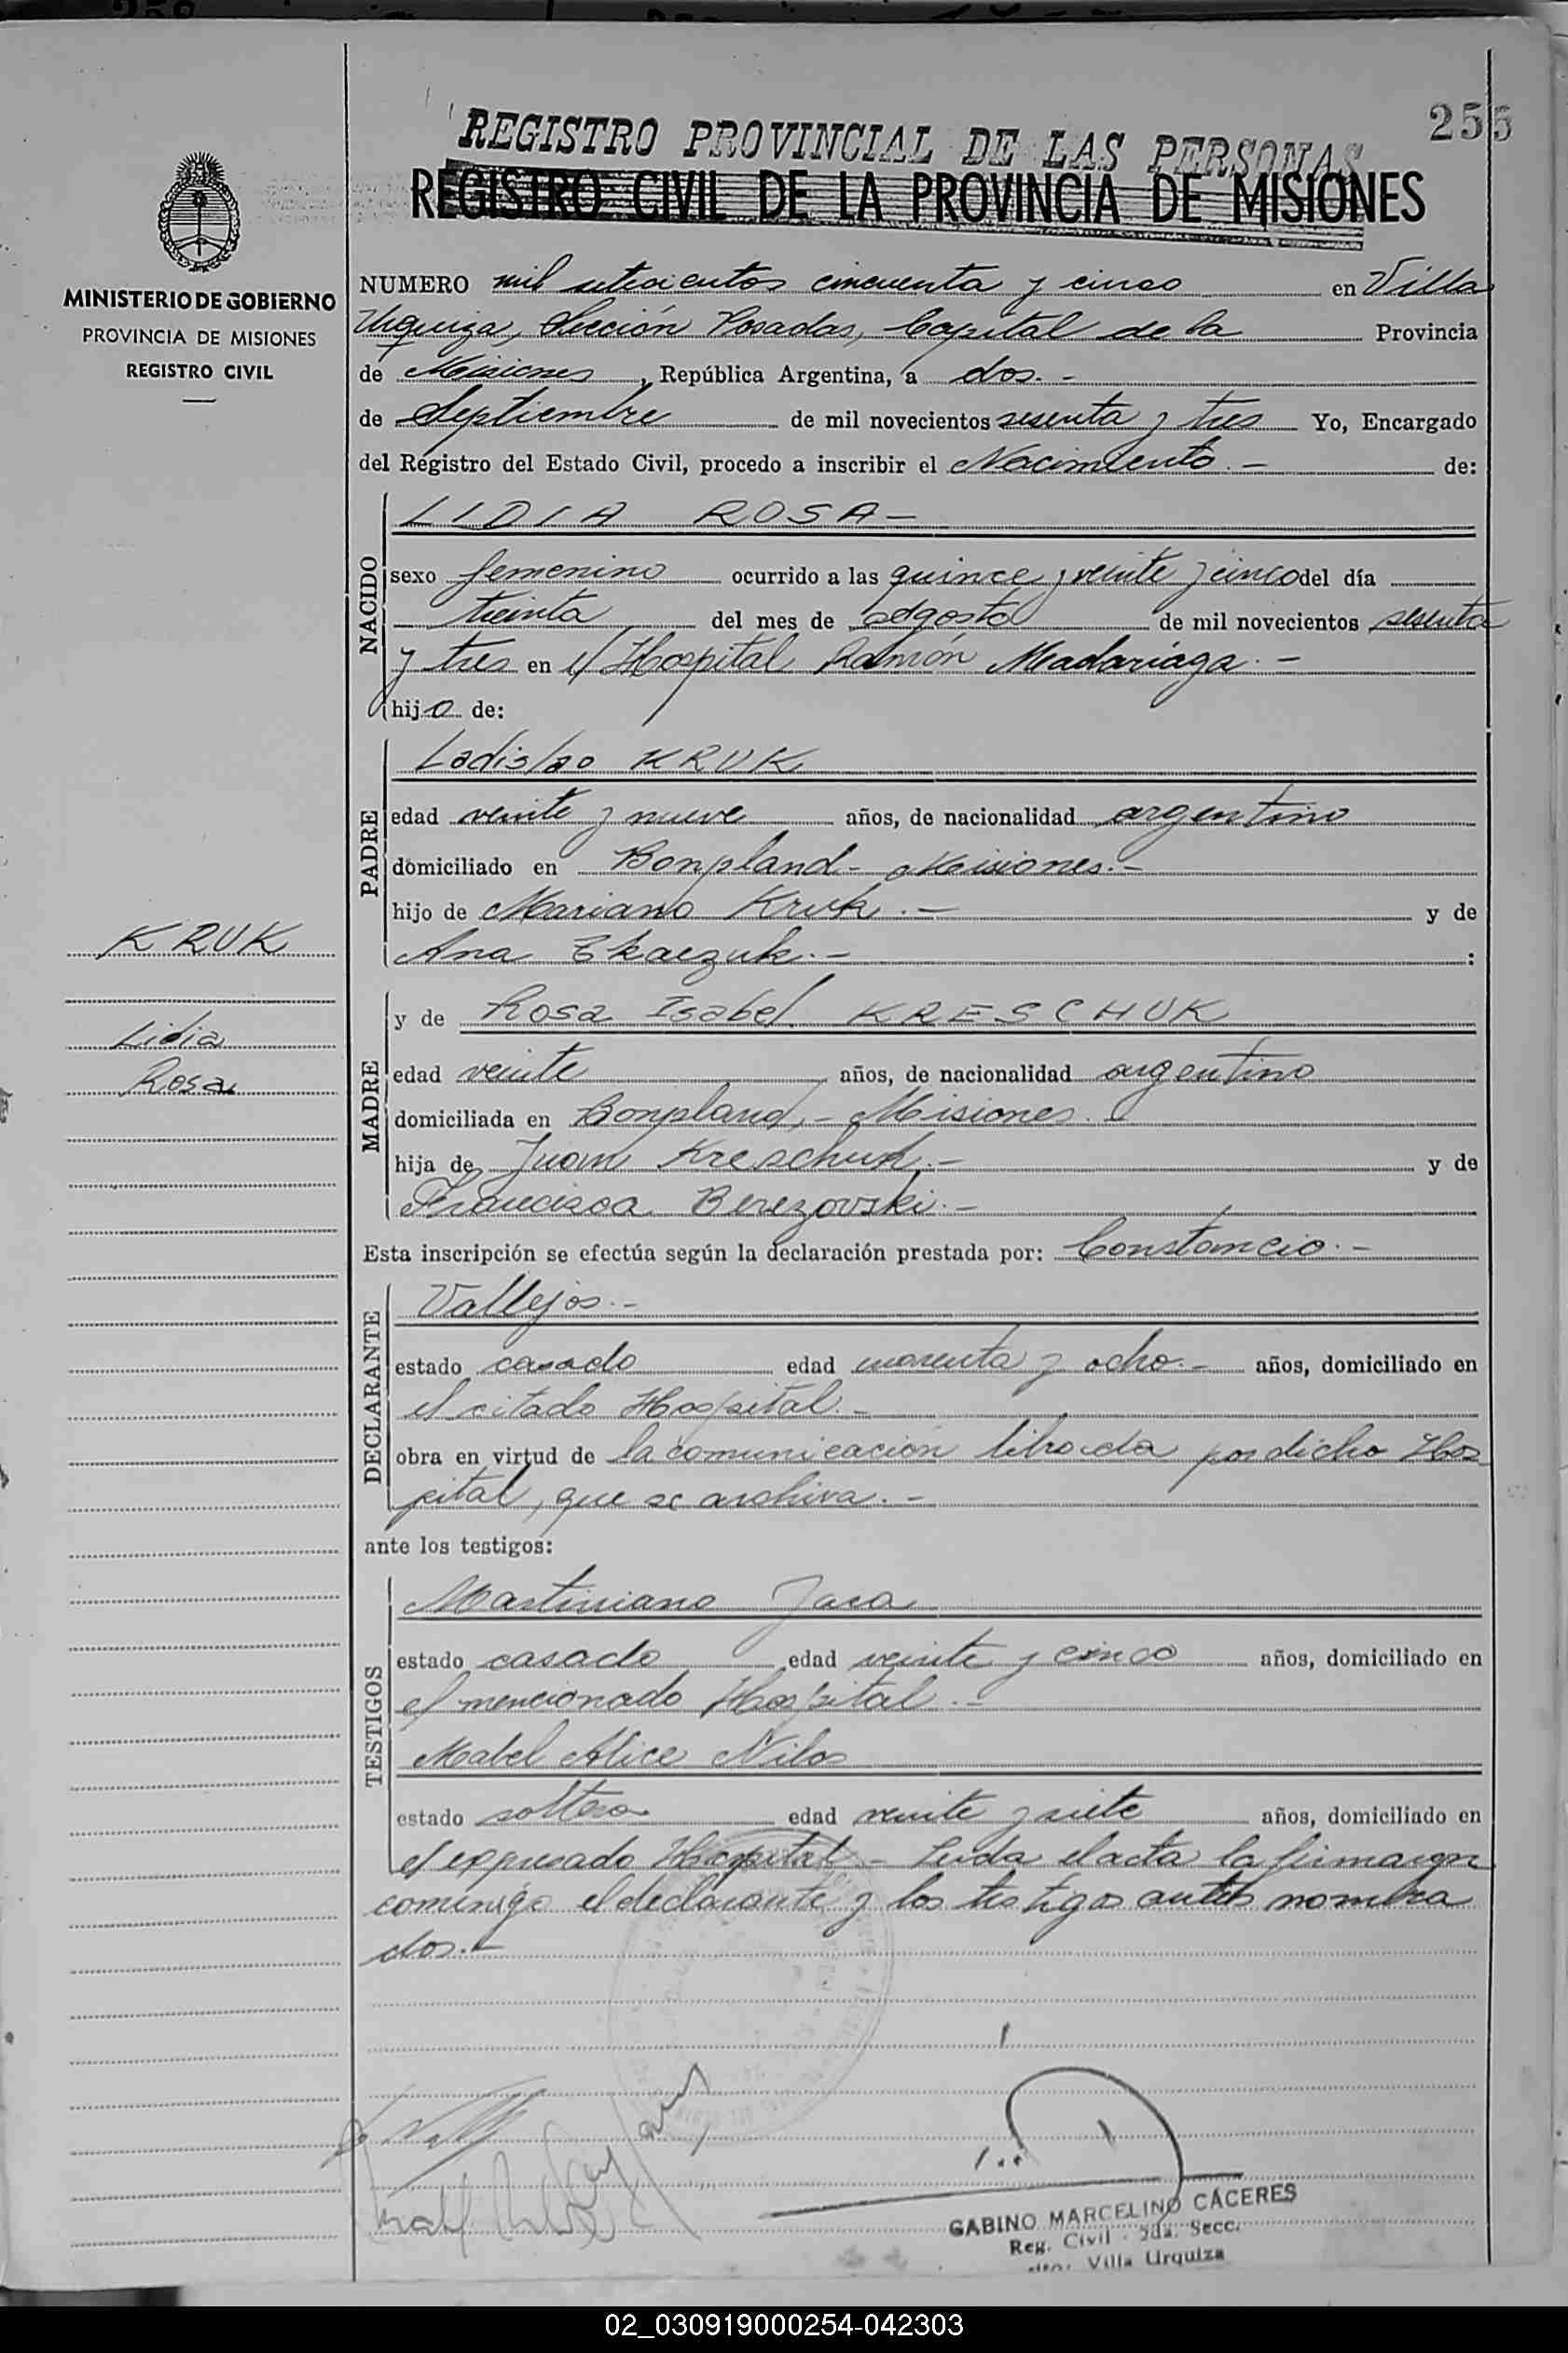 255
REGISTRO PROVINCIAL DE LAS PERSONAS
REGISTRO CIVIL DE LA PROVINCIA DE MISIONES
MINISTERIO DE GOBIERNO
PROVINCIA DE MISIONES
REGISTRO CIVIL
KRUK
Lidia
Rosa
NUMERO mil setecientos cincuenta y cinco en Villa
Urquiza, Sección Posadas, Capital de la Provincia
de Misiones, República Argentina, a dos.-
de Septiembre de mil novecientos sesenta y tres Yo, Encargado
del Registro del Estado Civil, procedo a inscribir el Nacimiento.- de:
NACIDO
LIDIA ROSA-
sexo femenino ocurrido a las quince y veinte y cinco del día
treinta del mes de agosto de mil novecientos sesenta
y tres en el Hospital Ramón Madariaga.-
hijo de:
PADRE
Ladislao KRUK
edad veinte y nueve años, de nacionalidad argentino
domiciliado en Bonpland- Misiones.-
hijo de Mariano Kruk.- y de
Ana :
MADRE
y de Rosa Isabel KRESCHUK
edad veinte años, de nacionalidad argentino
domiciliada en Bonpland,- Misiones.
hija de Juan Kreschuk.- y de
Francisca Berezovski.-
Esta inscripción se efectúa según la declaración prestada por: Constancio.-
DECLARANTE
Vallejos.-
estado casado edad cuarenta y ocho.- años, domiciliado en
el citado Hospital.-
obra en virtud de la comunicación librada por dicho Hos
pital, que se archiva.-
ante los testigos:
TESTIGOS
Martiniano Jara
estado casado edad veinte y cinco años, domiciliado en
el mencionado Hospital.-
Mabel Alice
estado soltera edad veinte y siete años, domiciliado en
el expresado Hospital.- Leida el acta la firmaron
conmigo el declarante y los testigos antes nombra
dos.-
GABINO MARCELINO CÁCERES
Reg. Civil - 2da. Secc.
Villa Urquiza
02_030919000254-042303